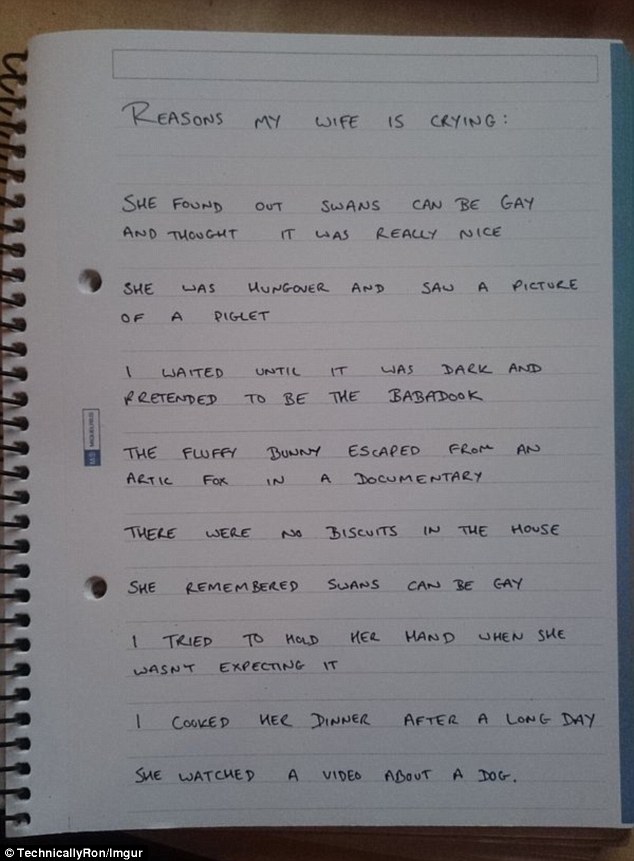 REASONS MY WIFE IS CRYING:
SHE FOUND OUT SWANS CAN BE GAY
AND THOUGHT IT WAS REALLY NICE
SHE WAS HUNGOVER AND SAW A PICTURE
OF A PIGLET
I WAITED UNTIL IT WAS DARK AND
PRETENDED TO BE THE BABADOOK
THE FLUFFY BUNNY ESCAPED FROM AN
ARTIC FOX IN A DOCUMENTARY
THERE WERE NO BISCUITS IN THE HOUSE
SHE REMEMBERED SWANS CAN BE GAY
I TRIED TO HOLD HER HAND WHEN SHE
WASN'T EXPECTING IT
I COOKED HER DINNER AFTER A LONG DAY
SHE WATCHED A VIDEO ABOUT A DOG.
© TechnicallyRon/Imgur